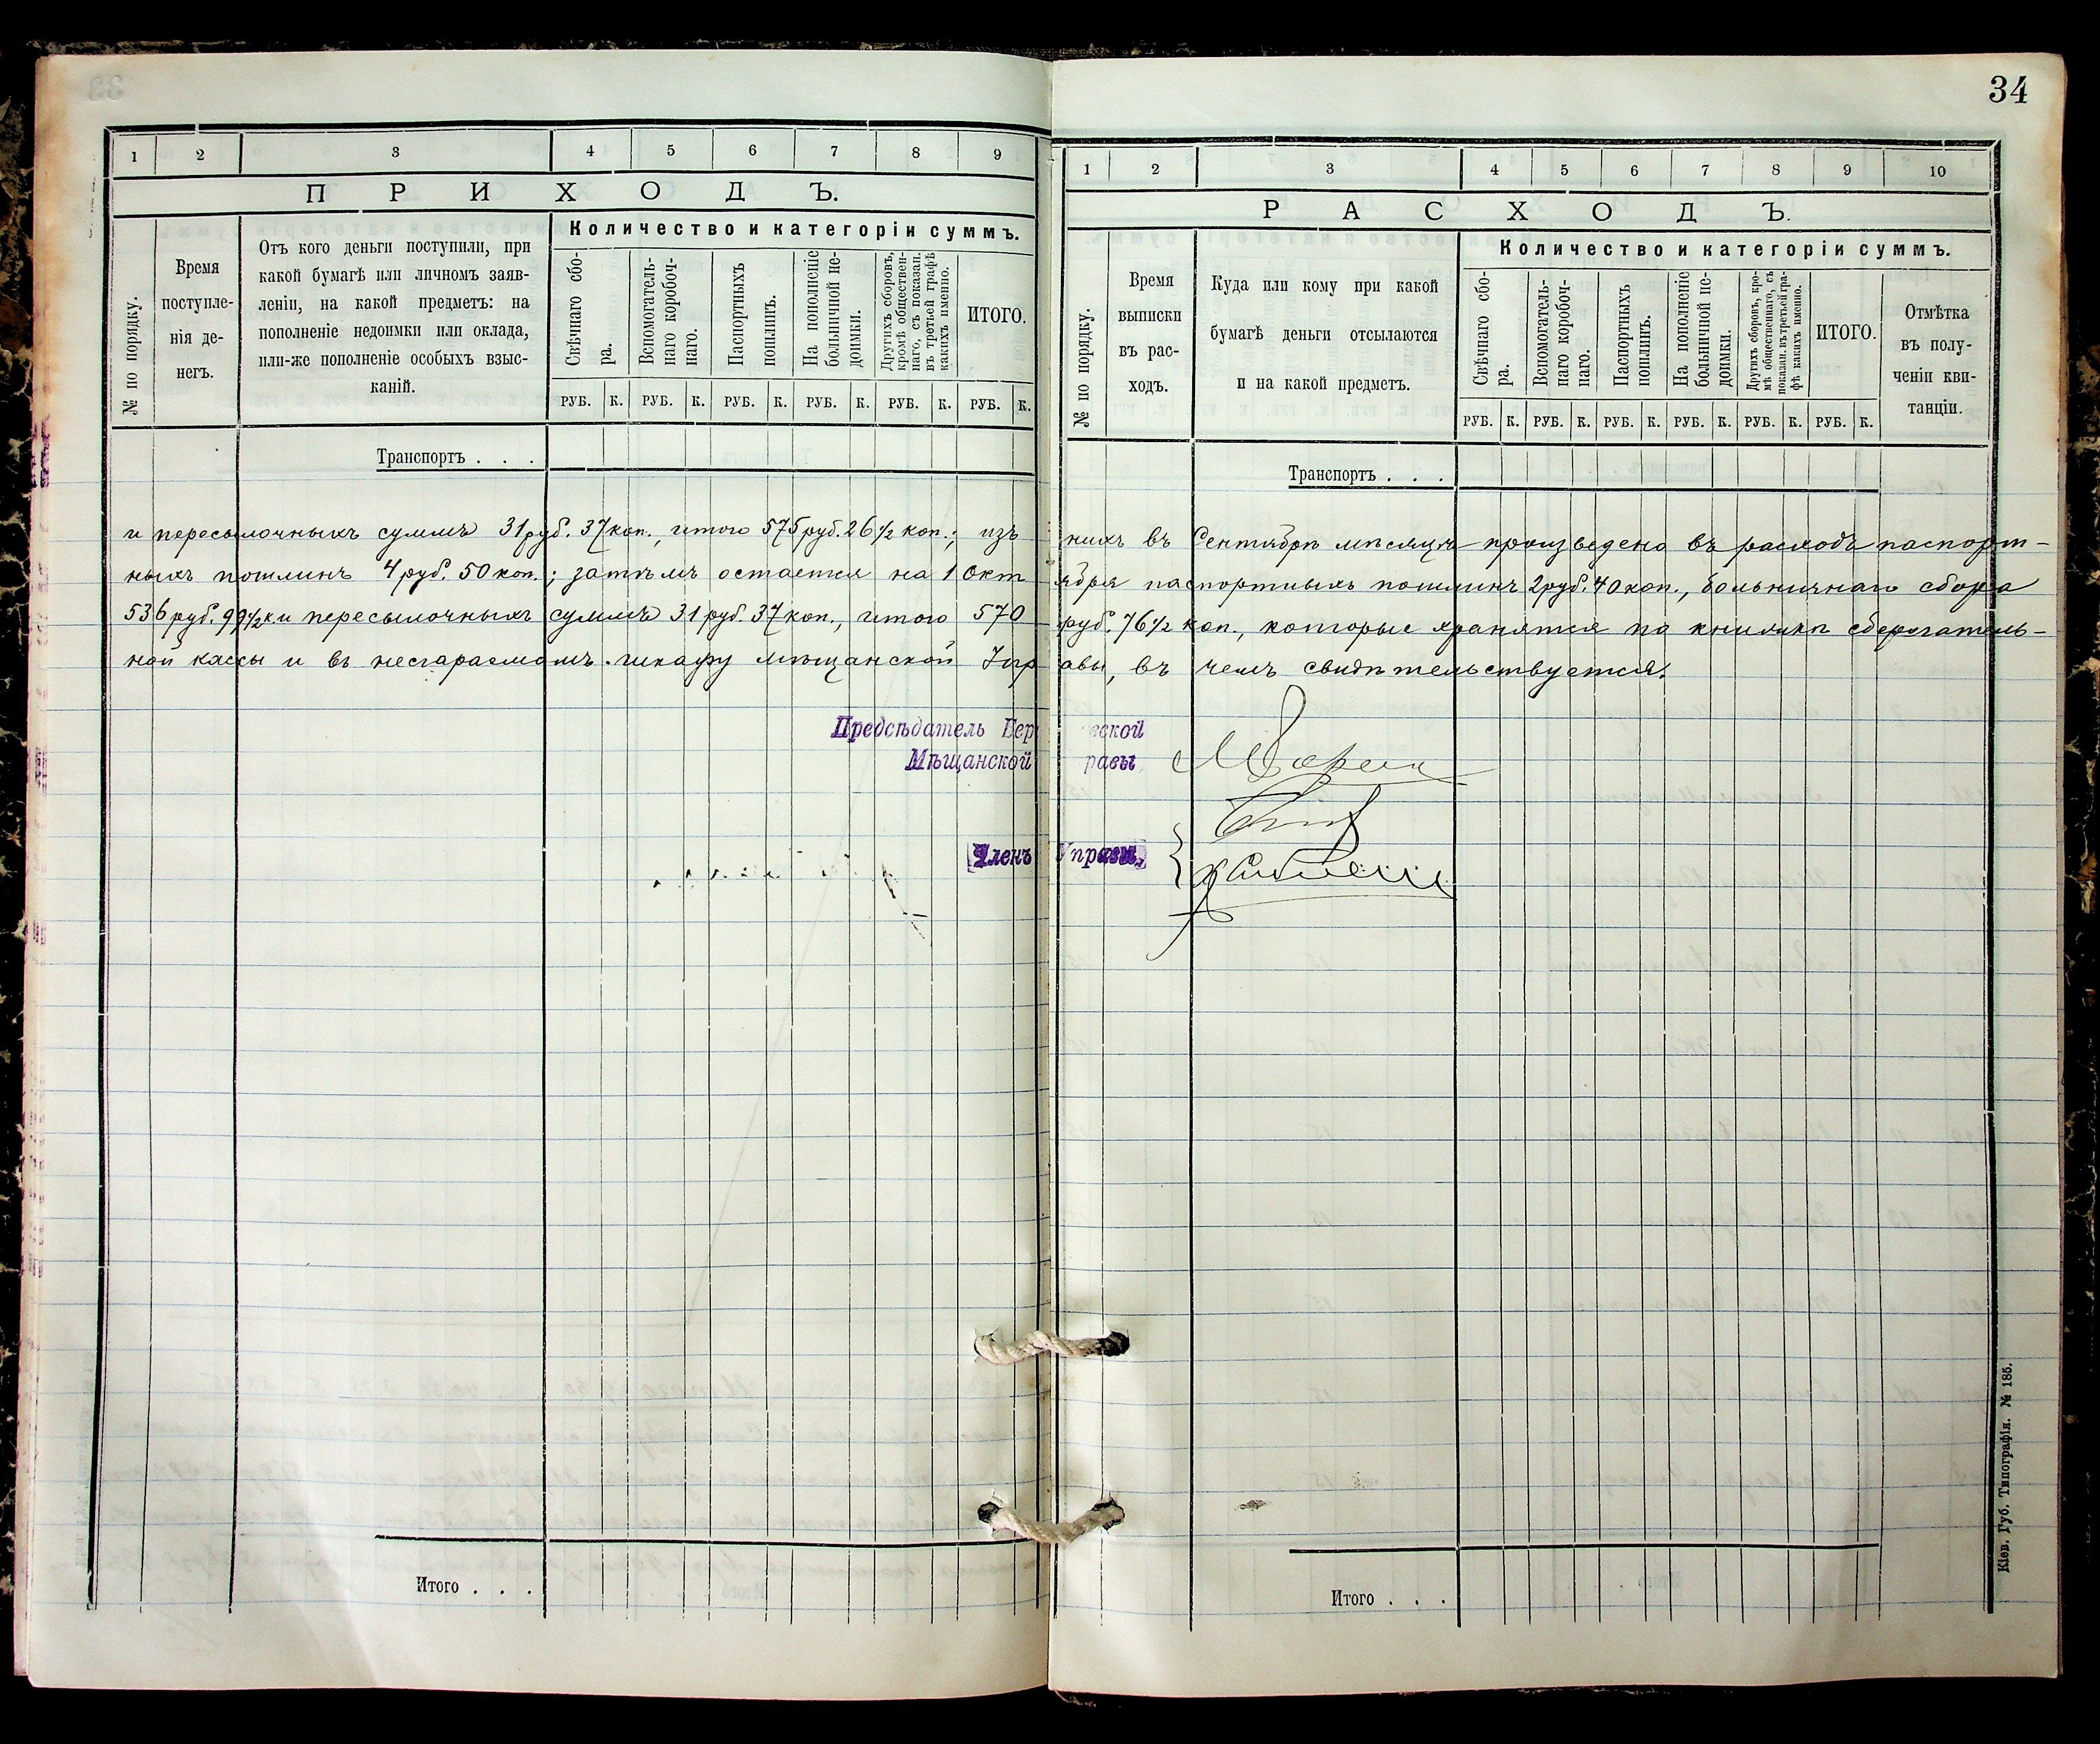 34
1 2 3 4 5 6 7 8 9
ПРИХОДЪ.
№ по порядку.
Время
поступле-
нія де-
негъ.
Отъ кого деньги поступили, при
какой бумагѣ или личномъ заяв-
леніи, на какой предметъ: на
пополненіе недоимки или оклада,
или-же пополненіе особыхъ взыс-
каній.
Количество и категоріи суммъ.
Свѣчнаго сбо-
ра.
Вспомогатель-
наго коробоч-
наго.
Паспортныхъ
пошлинъ.
На пополненіе
больничной не-
доимки.
Другихъ сборовъ,
кромѣ обществен-
наго, съ показан.
въ третьей графѣ
какихъ именно.
ИТОГО.
РУБ. К. РУБ. К. РУБ. К. РУБ. К. РУБ. К. РУБ. К.
Транспортъ . . .
1 2 3 4 5 6 7 8 9 10
РАСХОДЪ.
№ по порядку.
Время
выписки
въ рас-
ходъ.
Куда или кому при какой
бумагѣ деньги отсылаются
и на какой предметъ.
Количество и категоріи суммъ.
Свѣчнаго сбо-
ра.
Вспомогатель-
наго коробоч-
наго.
Паспортныхъ
пошлинъ.
На пополненіе
больничной не-
доимки.
Другихъ сборовъ, кро-
мѣ общественнаго, съ
показан. въ третьей гра-
фѣ какихъ именно.
ИТОГО.
Отмѣтка
въ полу-
ченіи кви-
танціи.
РУБ. К. РУБ. К. РУБ. К. РУБ. К. РУБ. К. РУБ. К.
Транспортъ . . .
и пересылочныхъ суммъ 31 руб. 37 коп., итого 575 руб. 26 1/2 коп.; изъ нихъ въ Сентябрѣ мѣсяцѣ произведено въ расходъ паспорт-
ныхъ пошлинъ 4 руб. 50 коп.; затѣмъ остается на 1 Октября паспортныхъ пошлинъ 2 руб. 40 коп., больничнаго сбора
536 руб. 99 1/2 к. и пересылочныхъ суммъ 31 руб. 37 коп., итого 570 руб. 76 1/2 коп., которые хранятся по книжкѣ сберегатель-
ной кассы и въ несгараемомъ шкафу мѣщанской Управы, въ чемъ свидѣтельствуется.
Предсѣдатель Бер евской
Мѣщанской равы
Членъ Управы,
Итого . . .
Итого . . .
Кіев. Губ. Типографія. № 186.